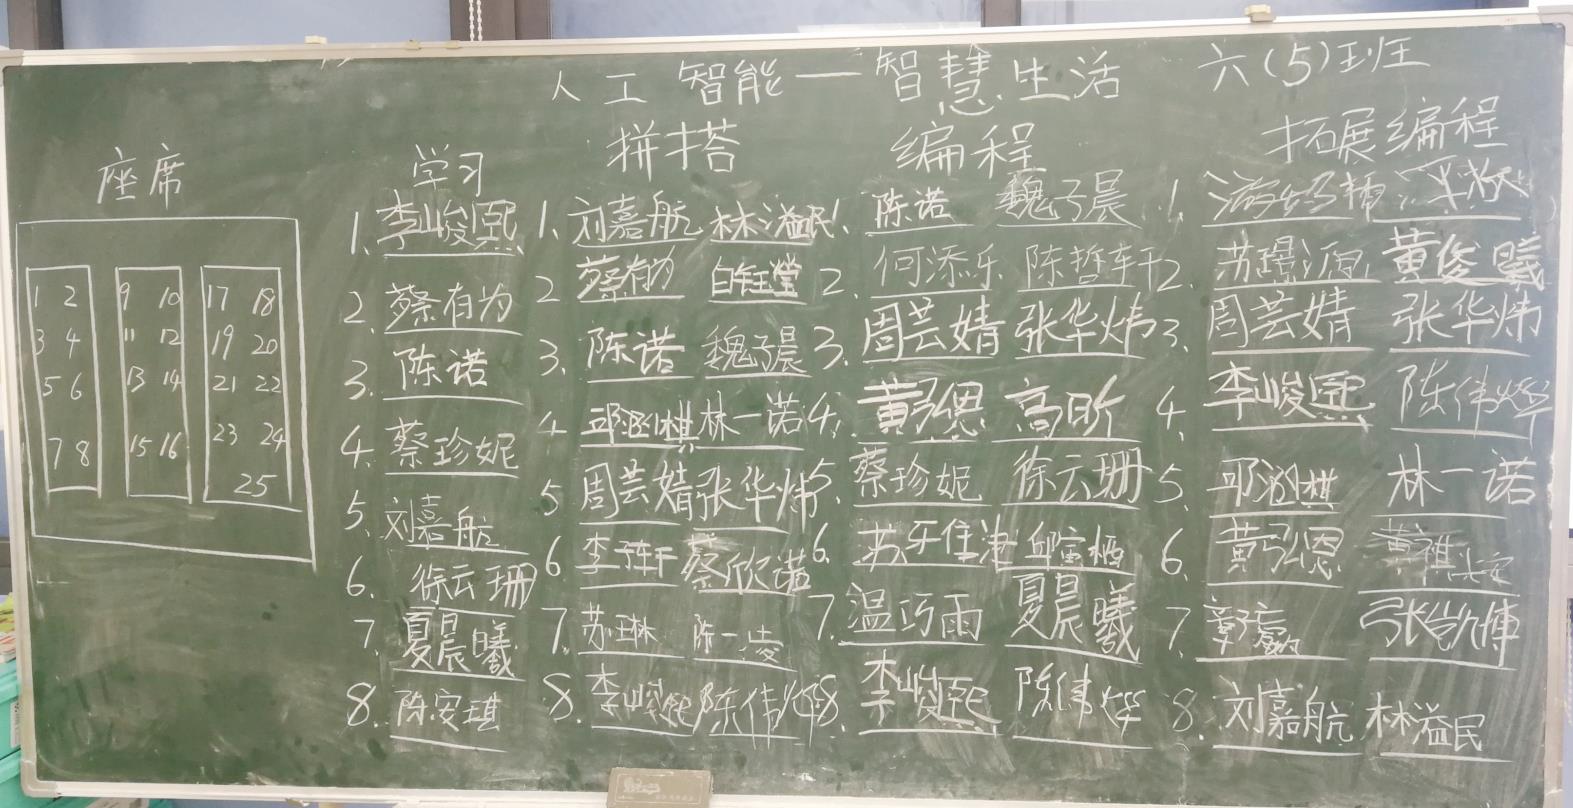 人工智能一智慧生活 六(5)班
座席
1 2
3 4
5 6
7 8
9 10
11 12
13 14
15 16
17 18
19 20
21 22
23 24
25
学习
1. 李峻熙
2. 蔡有为
3. 陈诺
4. 蔡珍妮
5. 刘嘉航
6. 徐云珊
7. 夏晨曦
8. 陈安琪
拼搭
1. 刘嘉航 林溢民
2 蔡有为 白钰莹
3. 陈诺 魏子晨
4 林一诺
5 周芸婧 张华炜
6 李子轩 蔡欣诺
7. 苏琳 陈一凌
8. 李峻熙 陈伟烨
编程
1. 陈诺 魏子晨
2. 何添乐 陈哲轩
3. 周芸婧 张华炜
4. 黄弘恩 高昕
5. 蔡珍妮 徐云珊
6. 苏
7. 温巧雨 夏晨曦
8. 李峻熙 陈伟烨
拓展编程
1.
2. 苏璟源 黄俊曦
3. 周芸婧 张华炜
4 李峻熙 陈伟烨
5. 林一诺
6. 黄弘恩 黄祺
7. 张凯博
8. 刘嘉航 林溢民